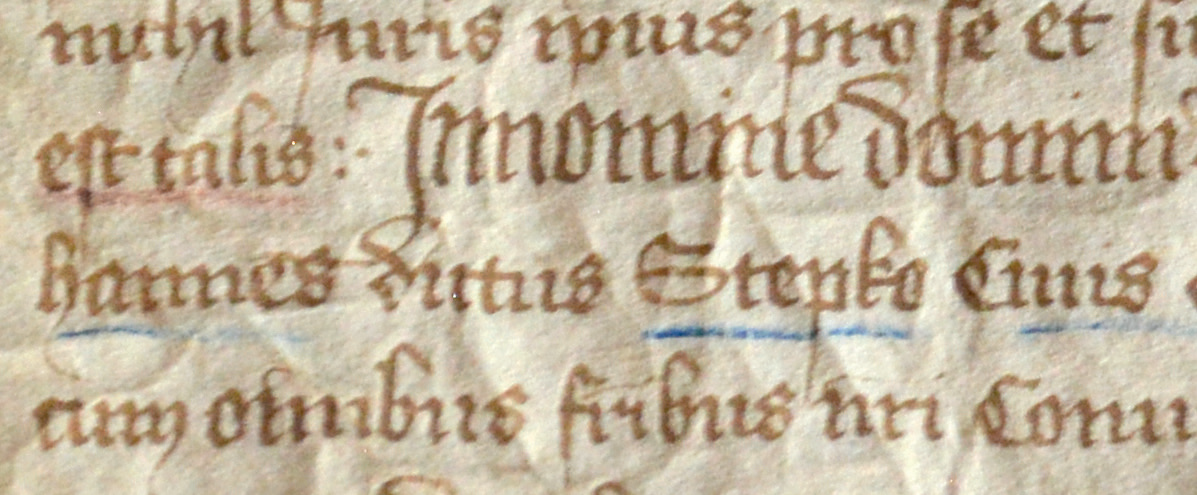 nichil Juris ipius pro se et su
est talis : Jn nomine domini
hannes dictus Stepko Ciuis
cum omibus fribus nri Conu